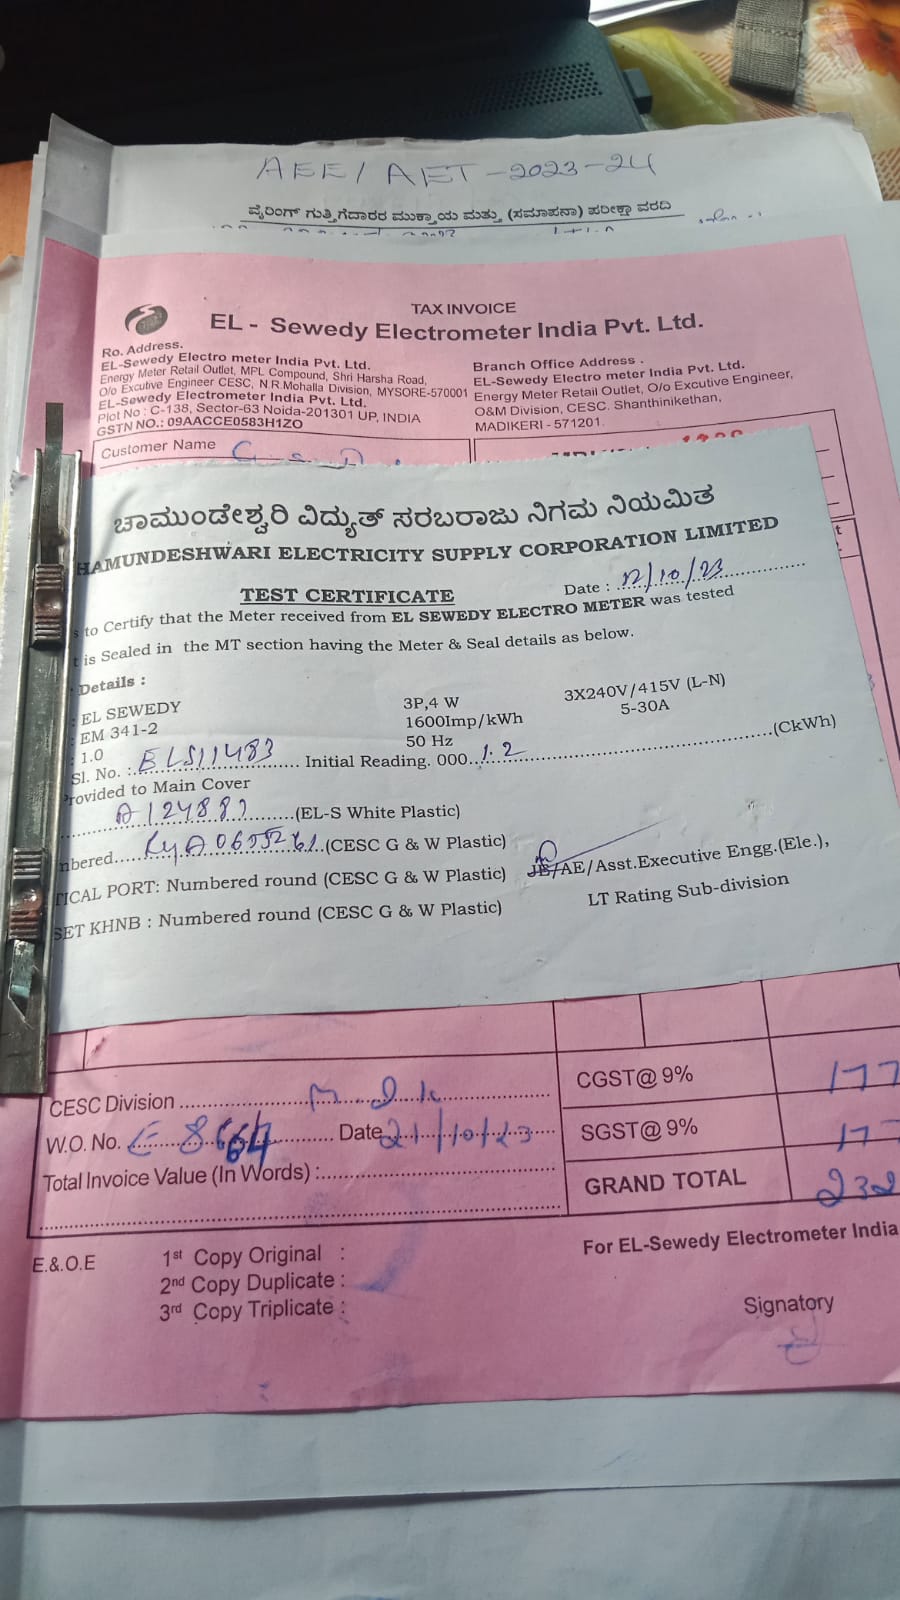 AEE / AET - 2023-24
ವೈರಿಂಗ್ ಗುತ್ತಿಗೆದಾರರ ಮುಕ್ತಾಯ ಮತ್ತು (ಸಮಾಪನಾ) ಪರೀಕ್ಷಾ ವರದಿ
TAX INVOICE
EL - Sewedy Electrometer India Pvt. Ltd.
Ro. Address.
EL-Sewedy Electro meter India Pvt. Ltd.
Energy Meter Retail Outlet, MPL Compound, Shri Harsha Road,
O/o Excutive Engineer CESC, N.R.Mohalla Division, MYSORE-570001
EL-Sewedy Electrometer India Pvt. Ltd.
Plot No : C-138, Sector-63 Noida-201301 UP, INDIA
GSTN NO.: 09AACCE0583H1ZO
Branch Office Address .
EL-Sewedy Electro meter India Pvt. Ltd.
Energy Meter Retail Outlet, O/o Excutive Engineer,
O&M Division, CESC. Shanthinikethan,
MADIKERI - 571201.
Customer Name
ಚಾಮುಂಡೇಶ್ವರಿ ವಿದ್ಯುತ್ ಸರಬರಾಜು ನಿಗಮ ನಿಯಮಿತ
HAMUNDESHWARI ELECTRICITY SUPPLY CORPORATION LIMITED
TEST CERTIFICATE Date : 12/10/23
s to Certify that the Meter received from EL SEWEDY ELECTRO METER was tested
t is Sealed in the MT section having the Meter & Seal details as below.
Details :
: EL SEWEDY 3P,4 W 3X240V/415V (L-N)
: EM 341-2 1600Imp/kWh 5-30A
: 1.0 50 Hz
Sl. No. : ELS11483 Initial Reading. 000 1.2 (CkWh)
Provided to Main Cover
(EL-S White Plastic)
nbered (CESC G & W Plastic)
TICAL PORT: Numbered round (CESC G & W Plastic) JE/AE/Asst.Executive Engg.(Ele.),
SET KHNB : Numbered round (CESC G & W Plastic) LT Rating Sub-division
CESC Division CGST@ 9% 177
W.O. No. E 8664 Date 21/10/23 SGST@ 9% 17
Total Invoice Value (In Words) : GRAND TOTAL 232
E.&.O.E 1st Copy Original : For EL-Sewedy Electrometer India
2nd Copy Duplicate :
3rd Copy Triplicate : Signatory